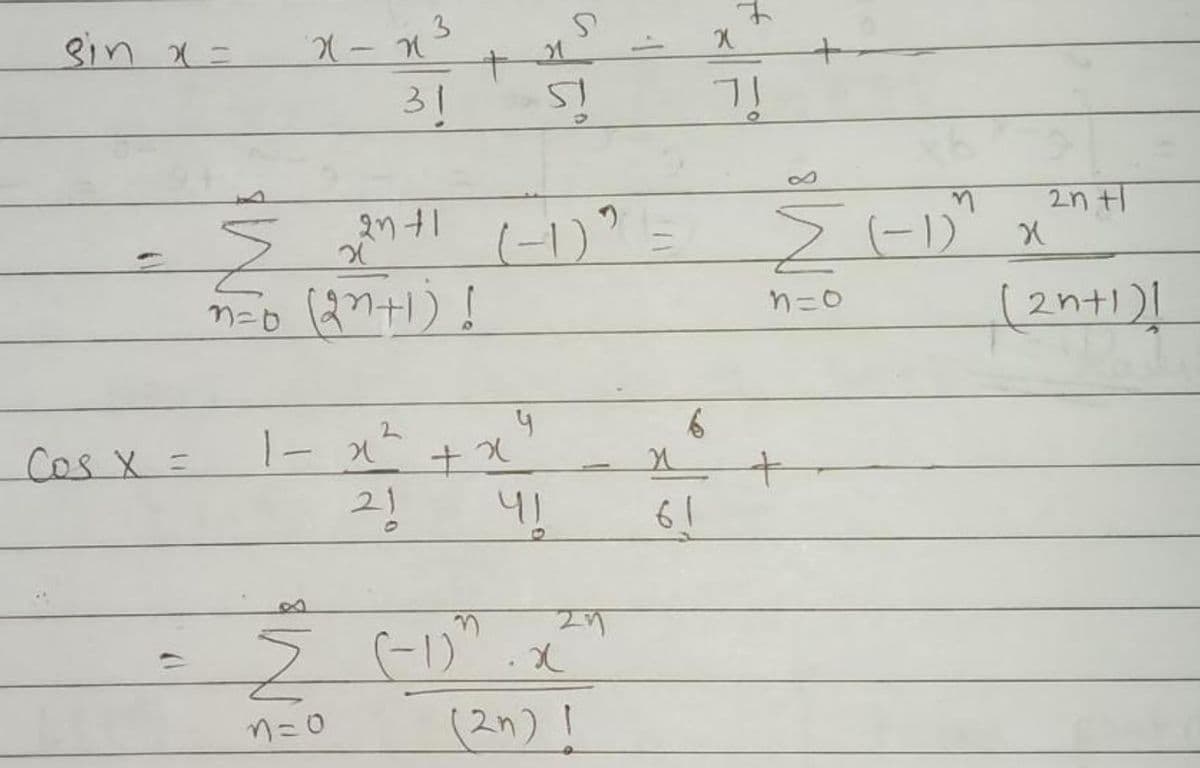 sin x = x - x³/3! + x⁵/5! - x⁷/7! + ----
= ∑_{n=0}^{∞} x^{2n+1}/(2n+1)! (-1)ⁿ = ∑_{n=0}^{∞} (-1)ⁿ x^{2n+1}/(2n+1)!
Cos x = 1 - x²/2! + x⁴/4! - x⁶/6! + ----
= ∑_{n=0}^{∞} (-1)ⁿ . x^{2n}/(2n)!